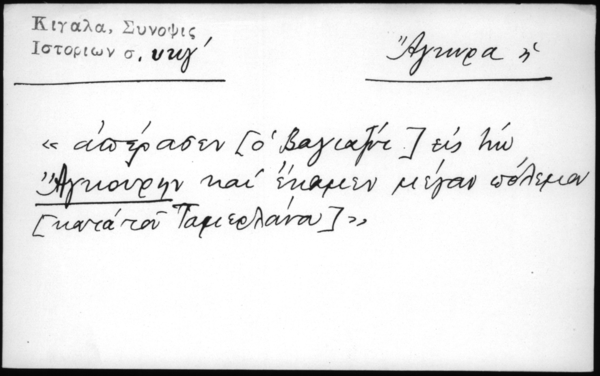 Κιγαλα, Συνοψις
Ιστοριων σ. υιγ'
Ἄγκυρα ἡ
« ἀπέρασεν [ὁ Βαγιαζὶτ] εἰς τὴν
Ἄγκιουρην καὶ ἔκαμεν μέγαν πόλεμον
[κατὰ τοῦ Ταμερλάνου] »